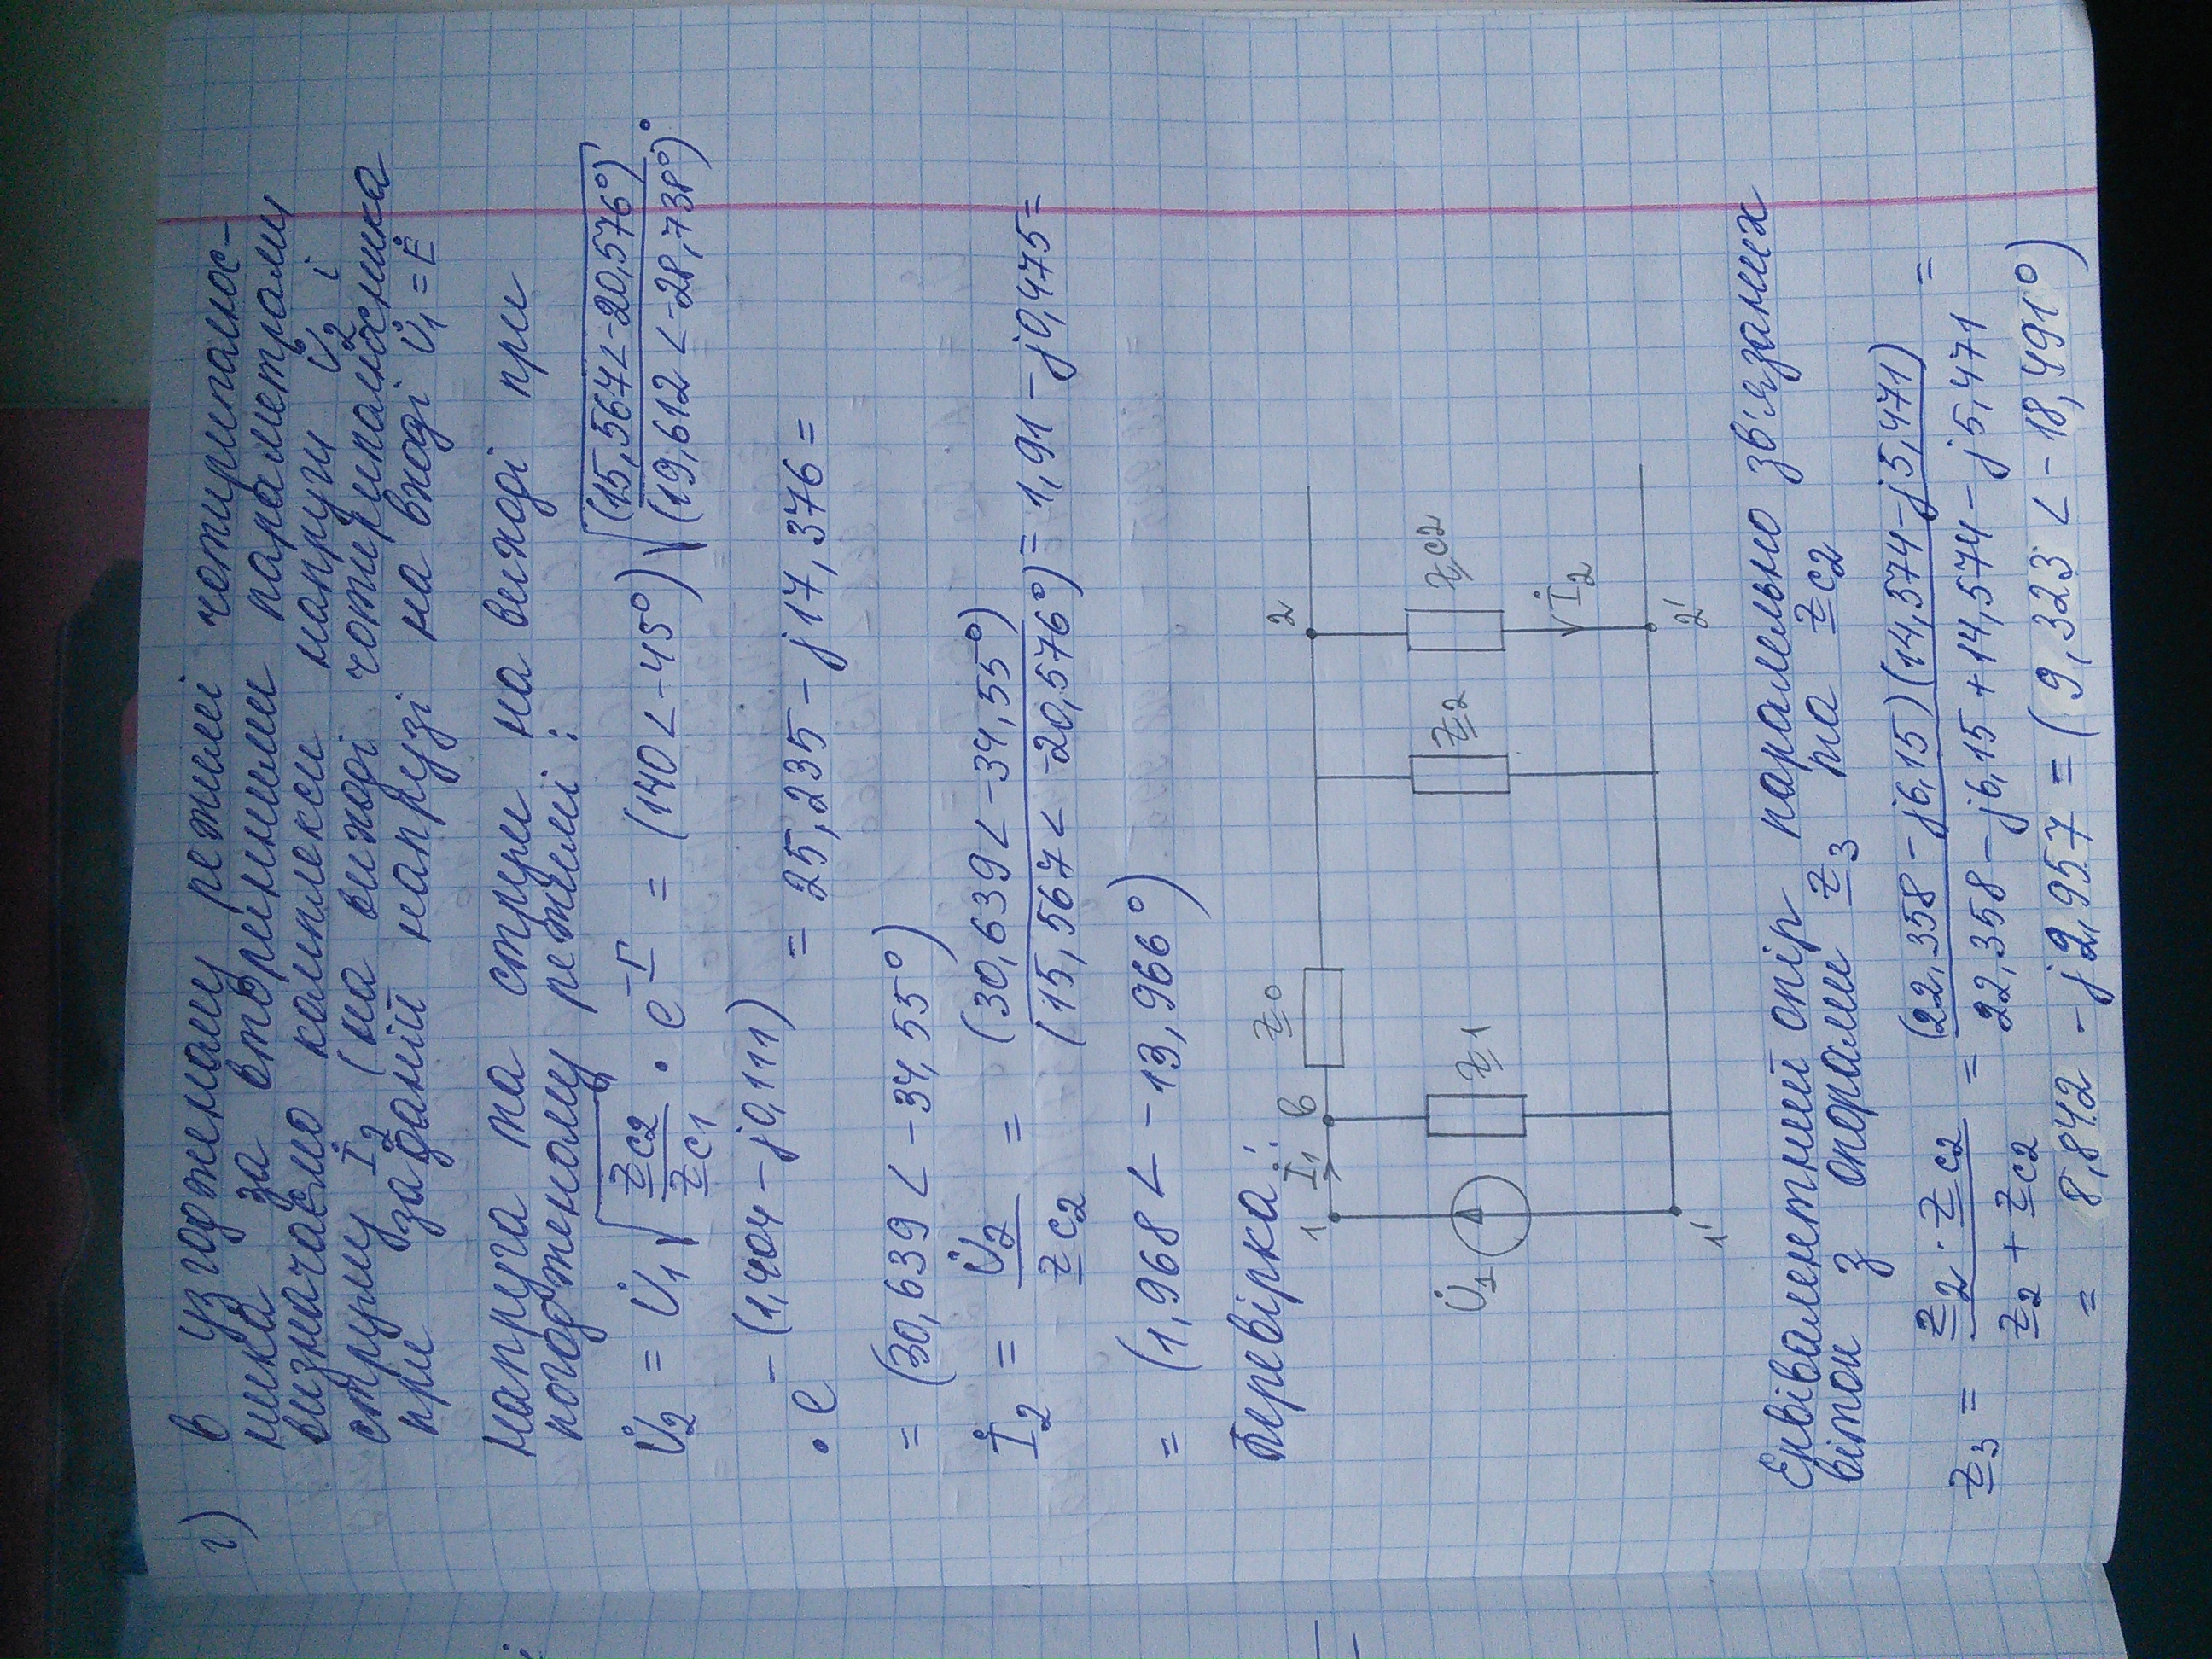 г) В узгодженому режимі чотириполюс-
ника за вторинними параметрами
визначаємо комплекси напруги U̇₂ і
струму İ₂ (на виході чотириполюсника
при заданій напрузі на вході U̇₁ = Ė
Напруга та струм на виході при
погодженому режимі:
U̇₂ = U̇₁ √(Z̲c2 / Z̲c1) · e^(-Γ̲) = (140∠-45°) √((15,567∠-20,576°) / (19,612∠-28,738°)) ·
· e^(-(1,404 - j0,111)) = 25,235 - j17,376 =
= (30,639∠-34,55°)
İ₂ = U̇₂ / Z̲c2 = (30,639∠-34,55°) / (15,567∠-20,576°) = 1,91 - j0,475 =
= (1,968∠-13,966°)
Перевірка:
1 İ₁ в Z̲0 2
U̇₁ Z̲1 Z̲2 Z̲c2
İ₂
1' 2'
Еквівалентний опір паралельно зв'язаних
віток з опорами Z̲₃ та Z̲c2
Z̲₃ = (Z̲₂ · Z̲c2) / (Z̲₂ + Z̲c2) = ((22,358 - j6,15)(14,374 - j5,471)) / (22,358 - j6,15 + 14,574 - j5,471) =
= 8,842 - j2,957 = (9,323∠-18,491°)